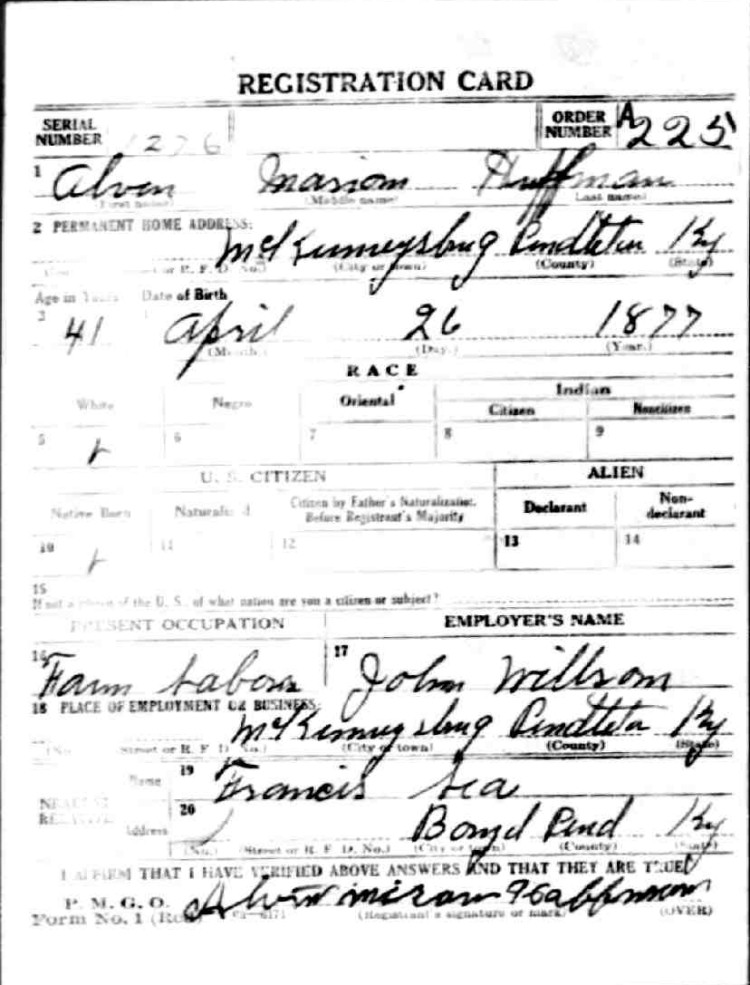 REGISTRATION CARD
SERIAL NUMBER 1276 ORDER NUMBER A 225
1 Alven Marion Huffman
(First name) (Middle name) (Last name)
2 PERMANENT HOME ADDRESS:
McKinneysbug Pendleton Ky
(No.) or R. F. D. No.) (City or town) (County) (State)
Age in Years Date of Birth
3 41 April 26 1877
(Month.) (Day.) (Year.)
RACE
White Negro Oriental Indian
Citizen Noncitizen
5 6 7 8 9
U. S. CITIZEN ALIEN
Native Born Naturalized Citizen by Father's Naturalization Before Registrant's Majority Declarant Non-declarant
10 11 12 13 14
15
If not a citizen of the U. S., of what nation are you a citizen or subject?
PRESENT OCCUPATION EMPLOYER'S NAME
16 Farm Labour 17 John Willson
18 PLACE OF EMPLOYMENT OR BUSINESS:
McKinneysbug Pendleton Ky
(No.) Street or R. F. D. No.) (City or town) (County) (State)
NEAREST RELATIVE Name 19 Francis Lea
Address 20 Boyd Pend Ky
(No.) (Street or R. F. D. No.) (City or town) (County) (State)
I AFFIRM THAT I HAVE VERIFIED ABOVE ANSWERS AND THAT THEY ARE TRUE
P. M. G. O.
Form No. 1 (Red) Alvin
(Registrant's signature or mark) (OVER)